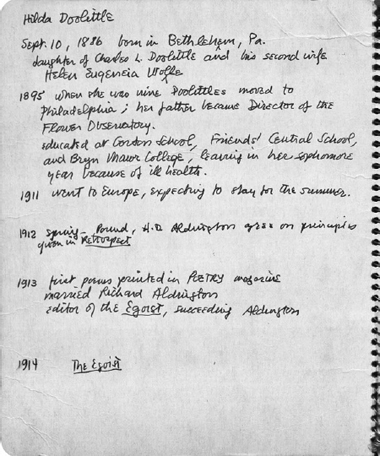 Hilda Doolittle
Sept. 10, 1886 born in Bethlehem, Pa.
daughter of Charles L. Doolittle and his second wife
Helen Eugeneia Wolle
1895 when she was nine Doolittles moved to
Philadelphia; her father became Director of the
Flower Observatory.
educated at Gordon School, Friends' Central School,
and Bryn Mawr College, leaving in her sophomore
year because of ill health.
1911 went to Europe, expecting to stay for the summer.
1912 spring - Pound, H.D. Aldington agree on principles
given in Retrospect
1913 first poems printed in POETRY magazine
married Richard Aldington
editor of the Egoist, succeeding Aldington
1914 The Egoist